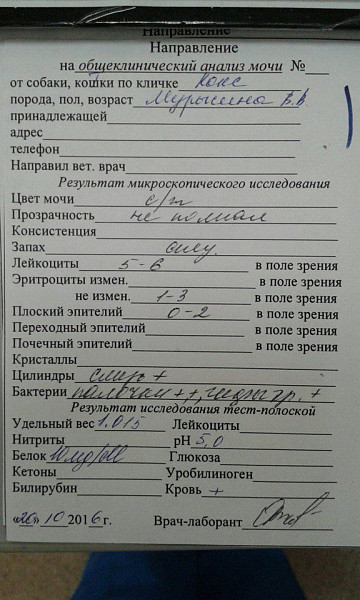 Направление
Направление
на общеклинический анализ мочи №
от собаки, кошки по кличке Кокс
порода, пол, возраст Мурысина В.А
принадлежащей
адрес
телефон
Направил вет. врач
Результат микроскопического исследования
Цвет мочи с/ж
Прозрачность не полная
Консистенция
Запах спец.
Лейкоциты 5-6 в поле зрения
Эритроциты измен. в поле зрения
не измен. 1-3 в поле зрения
Плоский эпителий 0-2 в поле зрения
Переходный эпителий в поле зрения
Почечный эпителий в поле зрения
Кристаллы
Цилиндры +
Бактерии палочки ++, +
Результат исследования тест-полоской
Удельный вес 1.015 Лейкоциты
Нитриты pH 5,0
Белок Глюкоза
Кетоны Уробилиноген
Билирубин Кровь +
«20» 10 2016г. Врач-лаборант